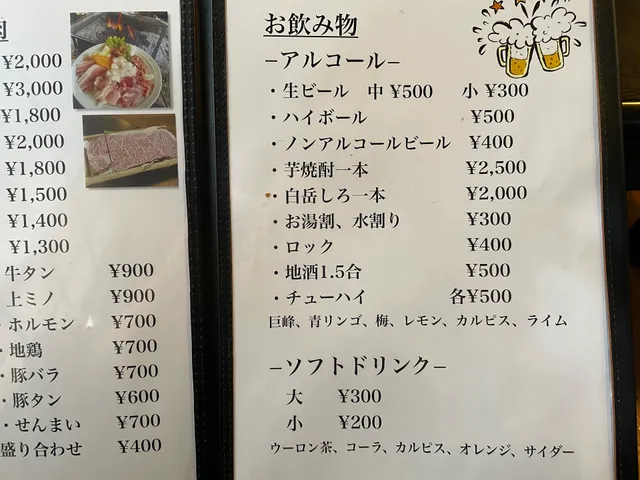 ¥2,000
¥3,000
¥1,800
¥2,000
¥1,800
¥1,500
¥1,400
¥1,300
牛タン ¥900
上ミノ ¥900
・ホルモン ¥700
・地鶏 ¥700
・豚バラ ¥700
・豚タン ¥600
・せんまい ¥700
盛り合わせ ¥400
お飲み物
–アルコール–
・生ビール 中 ¥500 小 ¥300
・ハイボール ¥500
・ノンアルコールビール ¥400
・芋焼酎一本 ¥2,500
・白岳しろ一本 ¥2,000
・お湯割、水割り ¥300
・ロック ¥400
・地酒1.5合 ¥500
・チューハイ 各¥500
巨峰、青リンゴ、梅、レモン、カルピス、ライム
–ソフトドリンク–
大 ¥300
小 ¥200
ウーロン茶、コーラ、カルピス、オレンジ、サイダー